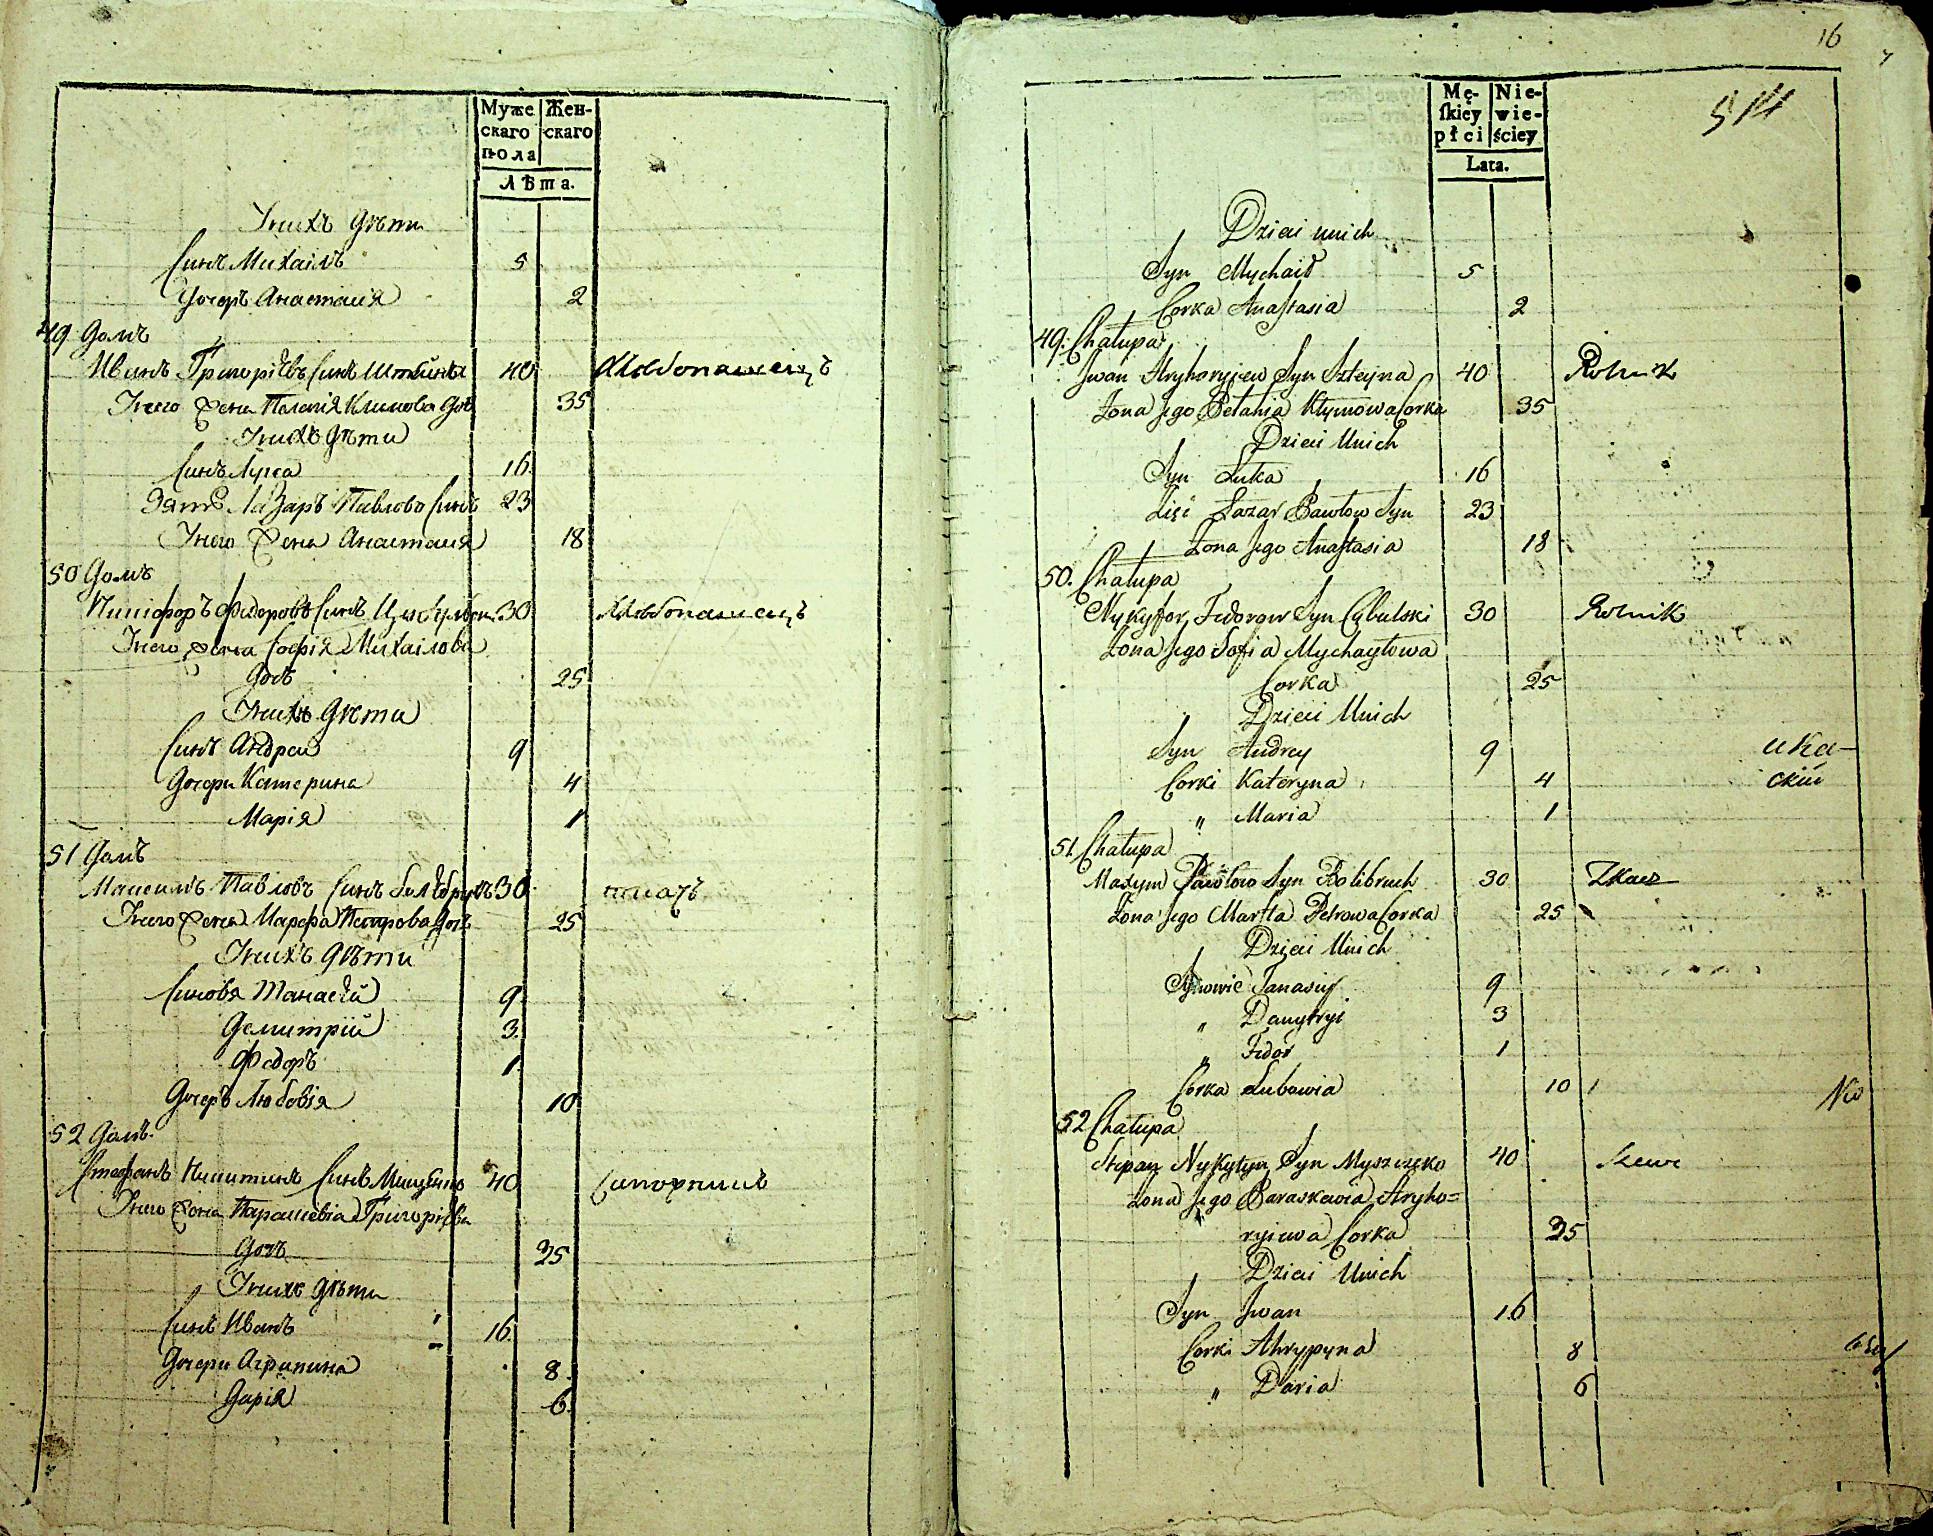 Муже
скаго
пола
Жен-
скаго
лѣта.
Унихъ дѣти
Синъ Михаілъ 5
Дочеръ Анастасія 2
49 Домъ
Иванъ Григорієвъ Синъ Штейна 40 Хлѣбопашецъ
Унего Жена Пелагія Климова Дочь 35
Унихъ дѣти
Синъ Лука 16
Зять Лазаръ Павловъ Синъ 23
Унего Жена Анастасия 18
50 Домъ
Никіфоръ Федоровъ Синъ 30 Хлѣбопашецъ
Унего жена Софія Михаілова
дочь 25
Унихъ дѣти
Синъ Андрей 9
Дочери Катерина 4
Марія 1
51 Домъ
Максимъ Павловъ Синъ 30 ткачъ
Унего Жена Марфа Петрова Дочь 25
Унихъ дѣти
Синовя Танасій 9
Демитрій 3
Федоръ 1
Дочеръ Любовія 10
52 Домъ
Стефанъ Никитинъ Синъ 40
Унего Жена Параскевія Григорієва
дочь 35
Унихъ дѣти
Синъ Иванъ 16
Дочери Агрипина 8
Дарія 6
16
514
Mę-
ſkiey
płci
Nie-
wie-
ściey
Lata.
Dzieci unich
Syn Mychaił 5
Corka Anastasia 2
49. Chałupa
Jwan Hryhoryjew Syn Szteyna 40 Rolnik
Żona Jego Pelahia Kłymowa Corka 35
Dzieci Unich
Syn Łuka 16
Zięć Łazar Pawłow Syn 23
Żona Jego Anastasia 18
50. Chałupa
Nykyfor Fedorow Syn Cybulski 30 Rolnik
Żona Jego Sofia Mychayłowa
Corka 25
Dzieci Unich
Syn Andrey 9
Corki Kateryna 4
" Maria 1
51 Chałupa
Maxym Pawłow Syn Bolibruch 30 Tkacz
Żona Jego Marta Petrowa Corka 25
Dzieci Unich
Synowie Tanasiy 9
" Dmytryi 3
" Fedor 1
Corka Lubowia 10
52 Chałupa
Stepan Nykytyn Syn Myszczeko 40 Szewc
Żona Jego Paraskewia Hryho=
ryiewa Corka 35
Dzieci Unich
Syn Jwan 16
Corki Ahrypyna 8
" Daria 6